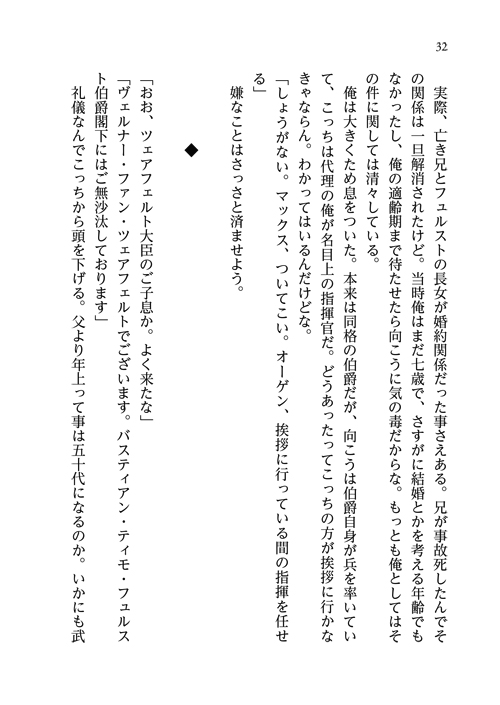 32
　実際、亡き兄とフュルストの長女が婚約関係だった事さえある。兄が事故死したんでそ
の関係は一旦解消されたけど。当時俺はまだ七歳で、さすがに結婚とかを考える年齢でも
なかったし、俺の適齢期まで待たせたら向こうに気の毒だからな。もっとも俺としてはそ
の件に関しては清々している。
　俺は大きくため息をついた。本来は同格の伯爵だが、向こうは伯爵自身が兵を率いてい
て、こっちは代理の俺が名目上の指揮官だ。どうあったってこっちの方が挨拶に行かな
きゃならん。わかってはいるんだけどな。
「しょうがない。マックス、ついてこい。オーゲン、挨拶に行っている間の指揮を任せ
る」
　嫌なことはさっさと済ませよう。
◆
「おお、ツェアフェルト大臣のご子息か。よく来たな」
「ヴェルナー・ファン・ツェアフェルトでございます。バスティアン・ティモ・フュルス
ト伯爵閣下にはご無沙汰しております」
　礼儀なんでこっちから頭を下げる。父より年上って事は五十代になるのか。いかにも武